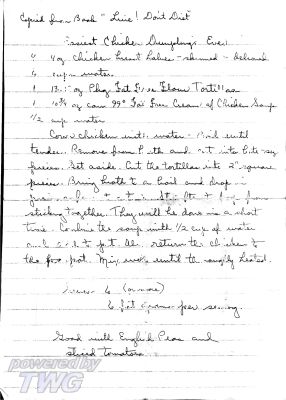 Copied from Book "Live! Don't Diet"
Easiest Chicken Dumplings Ever
4 4 oz chicken breast halves - skinned - deboned
4 cups water
1 13.5 oz Pkg Fat Free Flour Tortillas
1 10¾ oz can 99% Fat Free Cream of Chicken Soup
1/2 cup water
Cover chicken with water - Boil until
tender. Remove from Broth and cut into bite-size
pieces. Set aside. Cut the tortillas into 2" square
pieces. Bring broth to a boil and drop in
from
sticking together. They will be done in a short
time. Combine the soup with 1/2 cup of water
and add to pot. return the chicken to
the pot. Mix until thoroughly heated.
Serves 6 (or more)
6 fat grams per serving.
Good with English Peas and
sliced tomatoes.
powered by
TWG